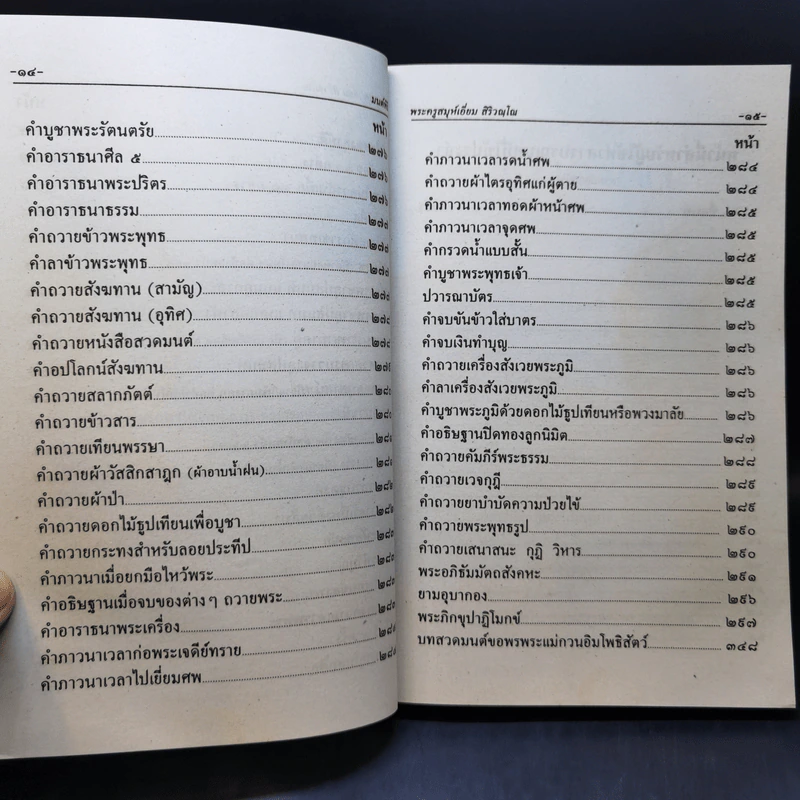 -๑๔-
หน้า
คำบูชาพระรัตนตรัย ๒๗๖
คำอาราธนาศีล ๕ ๒๗๖
คำอาราธนาพระปริตร ๒๗๖
คำอาราธนาธรรม
คำถวายข้าวพระพุทธ
คำลาข้าวพระพุทธ
คำถวายสังฆทาน (สามัญ)
คำถวายสังฆทาน (อุทิศ)
คำถวายหนังสือสวดมนต์
คำอปโลกน์สังฆทาน
คำถวายสลากภัตต์
คำถวายข้าวสาร
คำถวายเทียนพรรษา
คำถวายผ้าวัสสิกสาฎก (ผ้าอาบน้ำฝน)
คำถวายผ้าป่า
คำถวายดอกไม้ธูปเทียนเพื่อบูชา
คำถวายกระทงสำหรับลอยประทีป
คำภาวนาเมื่อยกมือไหว้พระ
คำอธิษฐานเมื่อจบของต่างๆ ถวายพระ
คำอาราธนาพระเครื่อง
คำภาวนาเวลาก่อพระเจดีย์ทราย
คำภาวนาเวลาไปเยี่ยมศพ
พระครูสมุห์เอี่ยม สิริวณฺโณ -๑๕-
หน้า
คำภาวนาเวลารดน้ำศพ ๒๘๔
คำถวายผ้าไตรอุทิศแก่ผู้ตาย ๒๘๔
คำภาวนาเวลาทอดผ้าหน้าศพ ๒๘๕
คำภาวนาเวลาจุดศพ ๒๘๕
คำกรวดน้ำแบบสั้น ๒๘๕
คำบูชาพระพุทธเจ้า ๒๘๕
ปวารณาบัตร ๒๘๕
คำจบขันข้าวใส่บาตร ๒๘๖
คำจบเงินทำบุญ ๒๘๖
คำถวายเครื่องสังเวยพระภูมิ ๒๘๖
คำลาเครื่องสังเวยพระภูมิ ๒๘๖
คำบูชาพระภูมิด้วยดอกไม้ธูปเทียนหรือพวงมาลัย ๒๘๖
คำอธิษฐานปิดทองลูกนิมิต ๒๘๗
คำถวายคัมภีร์พระธรรม ๒๘๘
คำถวายเวจกุฎี ๒๘๙
คำถวายยาบำบัดความป่วยไข้ ๒๘๙
คำถวายพระพุทธรูป ๒๙๐
คำถวายเสนาสนะ กุฏิ วิหาร ๒๙๐
พระอภิธัมมัตถสังคหะ ๒๙๑
ยามอุบากอง ๒๙๖
พระภิกขุปาฏิโมกข์ ๒๙๗
บทสวดมนต์ขอพรพระแม่กวนอิมโพธิสัตว์ ๓๔๘